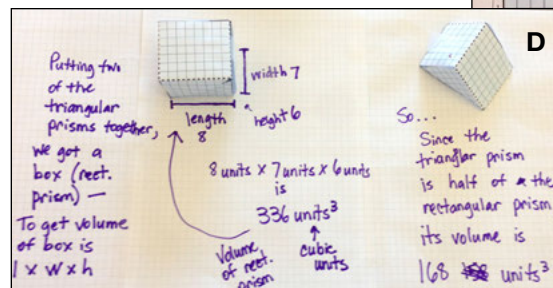 Putting two
of the
triangular
prisms together,
we got a
box (rect.
prism) —
To get volume
of box is
l x w x h
width 7
length
8
height 6
8 units x 7 units x 6 units
is
336 units³
Volume
of rect.
prism
cubic
units
D
So...
Since the
triangular prism
is half of the
rectangular prism
its volume is
168 units³